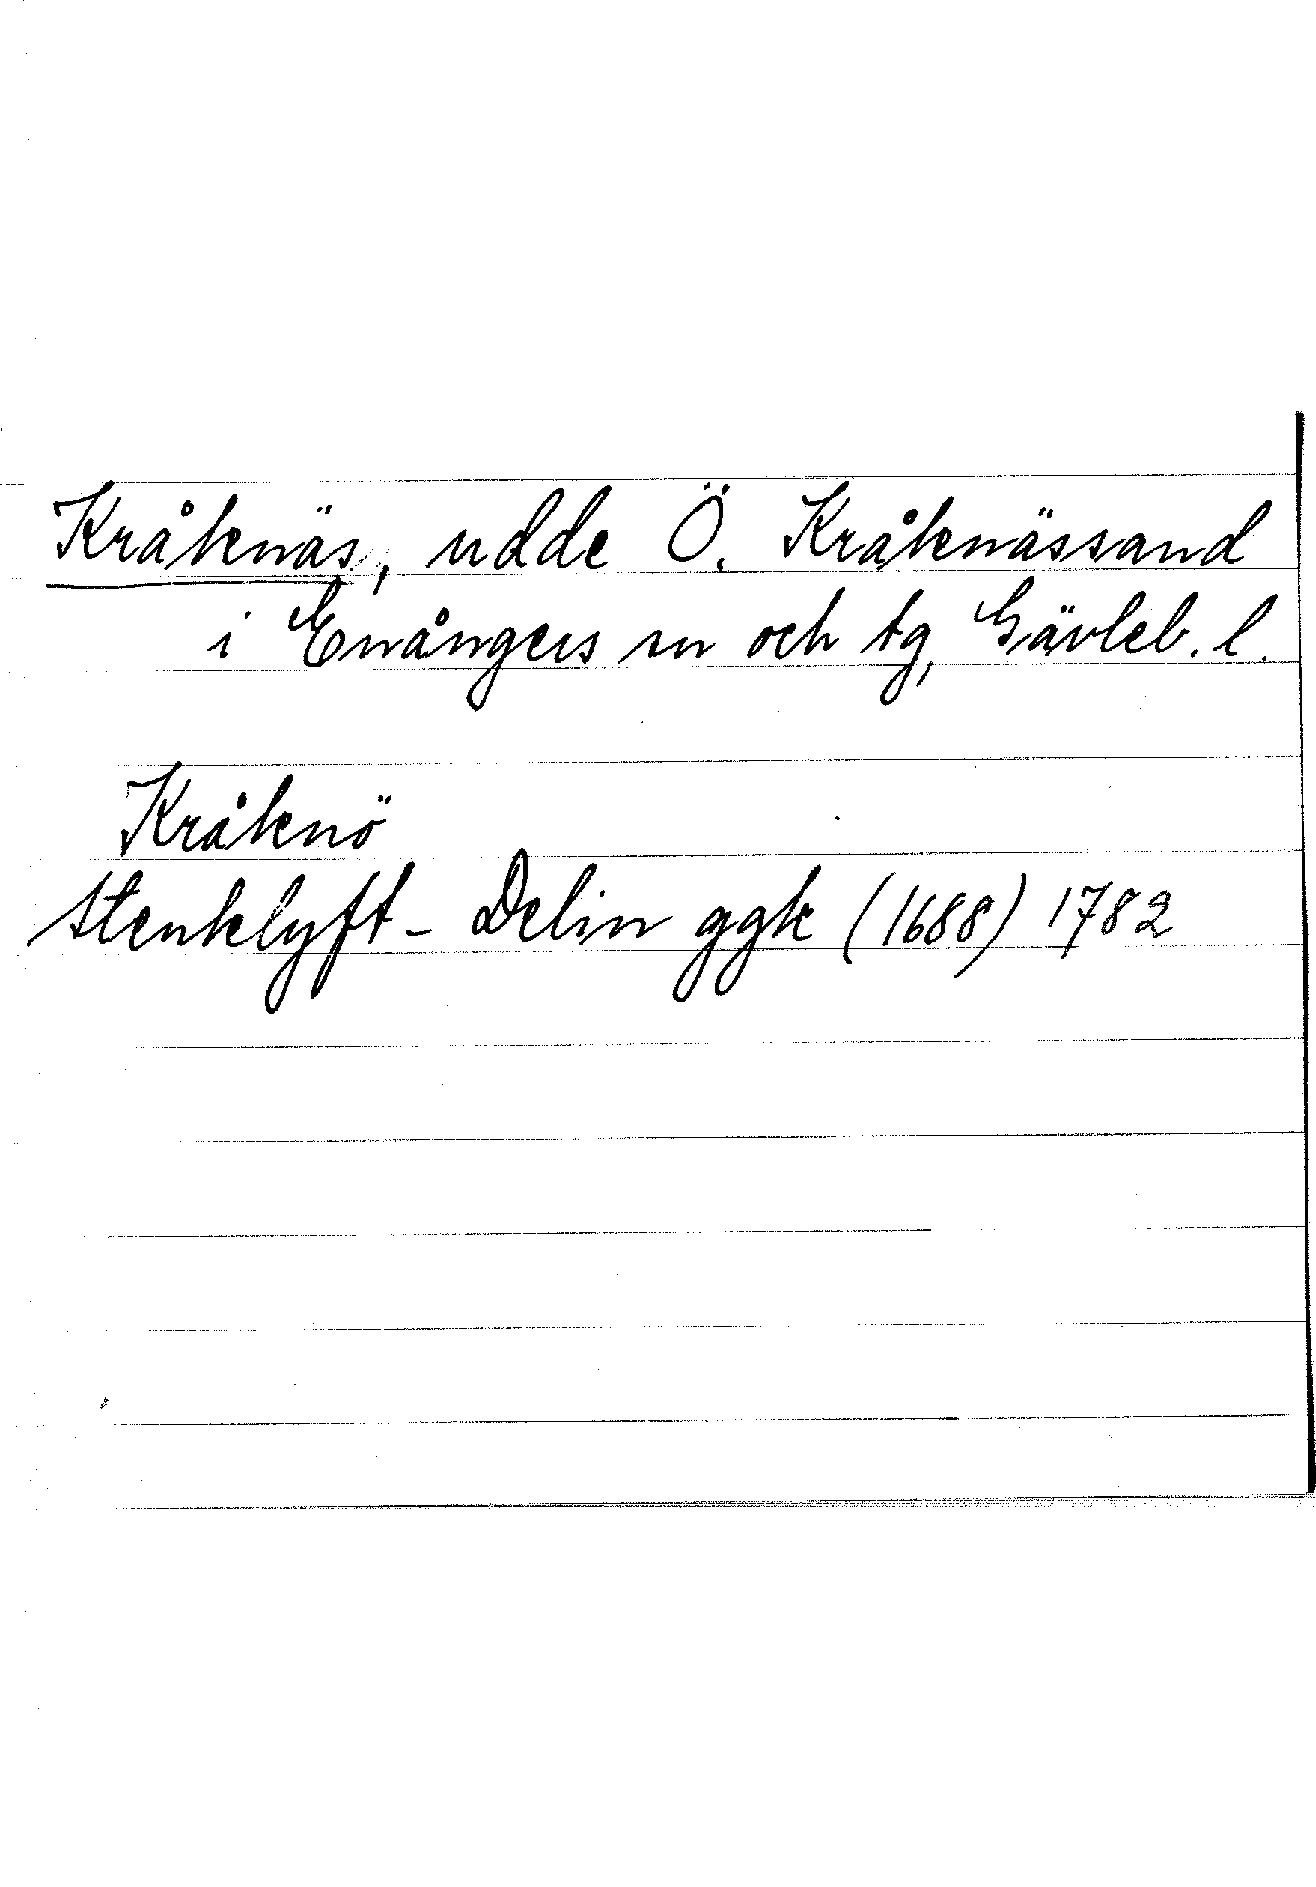 Kråknäs, udde Ö. Kråknässand
i Enångers sn och tg, Gävleb. l.
Kråknö
Stenklyft - Delin ggk (1688) 1782